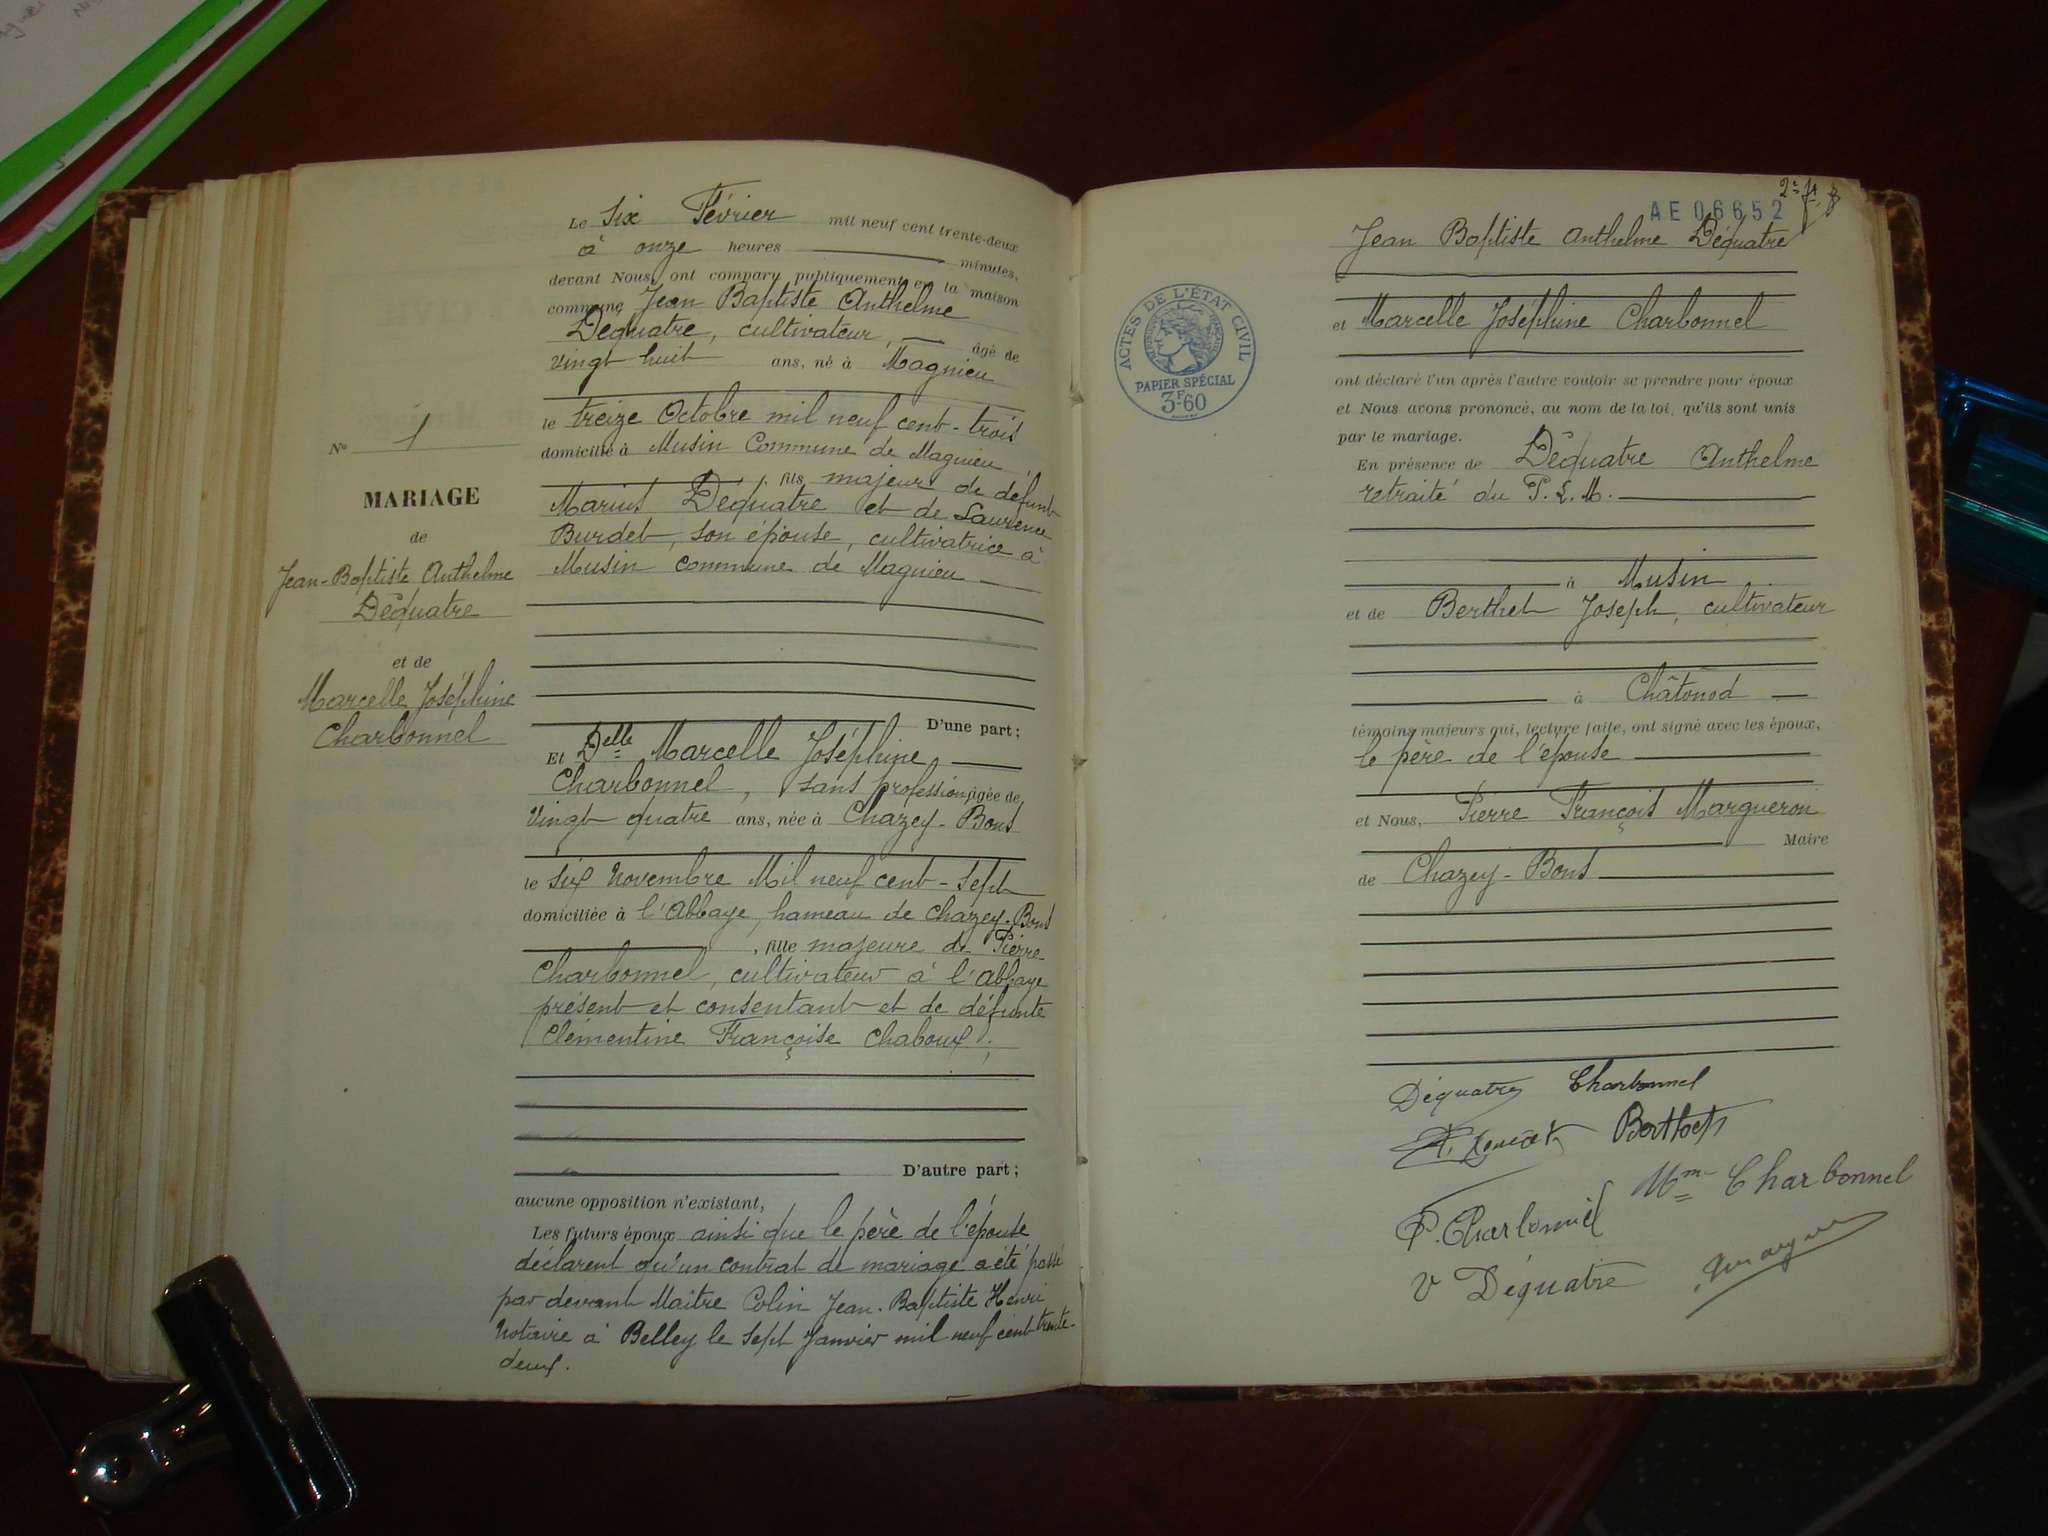 Le six Février mil neuf cent trente-deux
à onze heures minutes,
devant Nous, ont comparu publiquement en la maison
commune Jean Baptiste Anthelme
Déquatre, cultivateur, âgé de
vingt huit ans, né à Magnieu
le treize Octobre mil neuf cent-trois
domicilié à Musin Commune de Magnieu
, fils majeur de défunt
Marius Déquatre et de Laurence
Burdet, son épouse, cultivatrice à
Musin commune de Magnieu
N° 1
MARIAGE
de
Jean-Baptiste Anthelme
Déquatre
et de
Marcelle Joséphine
Charbonnel
D'une part ;
Et Delle Marcelle Joséphine
Charbonnel, sans profession, âgée de
vingt quatre ans, née à Chazey-Bons
le six Novembre Mil neuf cent-sept
domiciliée à l'Abbaye, hameau de Chazey-Bons
, fille majeure de Pierre
Charbonnel, cultivateur à l'Abbaye
présent et consentant et de défunte
Clémentine Françoise Chaboux ;
D'autre part ;
aucune opposition n'existant,
Les futurs époux ainsi que le père de l'épouse
déclarent qu'un contrat de mariage a été passé
par devant Maître Colin Jean-Baptiste Henri
Notaire à Belley le sept Janvier mil neuf cent trente-
deux.
AE 06652
ACTES DE L'ÉTAT CIVIL
PAPIER SPÉCIAL
3F60
Jean Baptiste Anthelme Déquatre
et Marcelle Joséphine Charbonnel
ont déclaré l'un après l'autre vouloir se prendre pour époux
et Nous avons prononcé, au nom de la loi, qu'ils sont unis
par le mariage.
En présence de Déquatre Anthelme
retraité du P.L.M.
à Musin
et de Berthet Joseph, cultivateur
à Châtonod
témoins majeurs qui, lecture faite, ont signé avec les époux,
le père de l'épouse
et Nous, Pierre François Margueron
Maire
de Chazey-Bons
Déquatre Charbonnel
Berthet
Mme Charbonnel
P. Charbonnel
V Déquatre